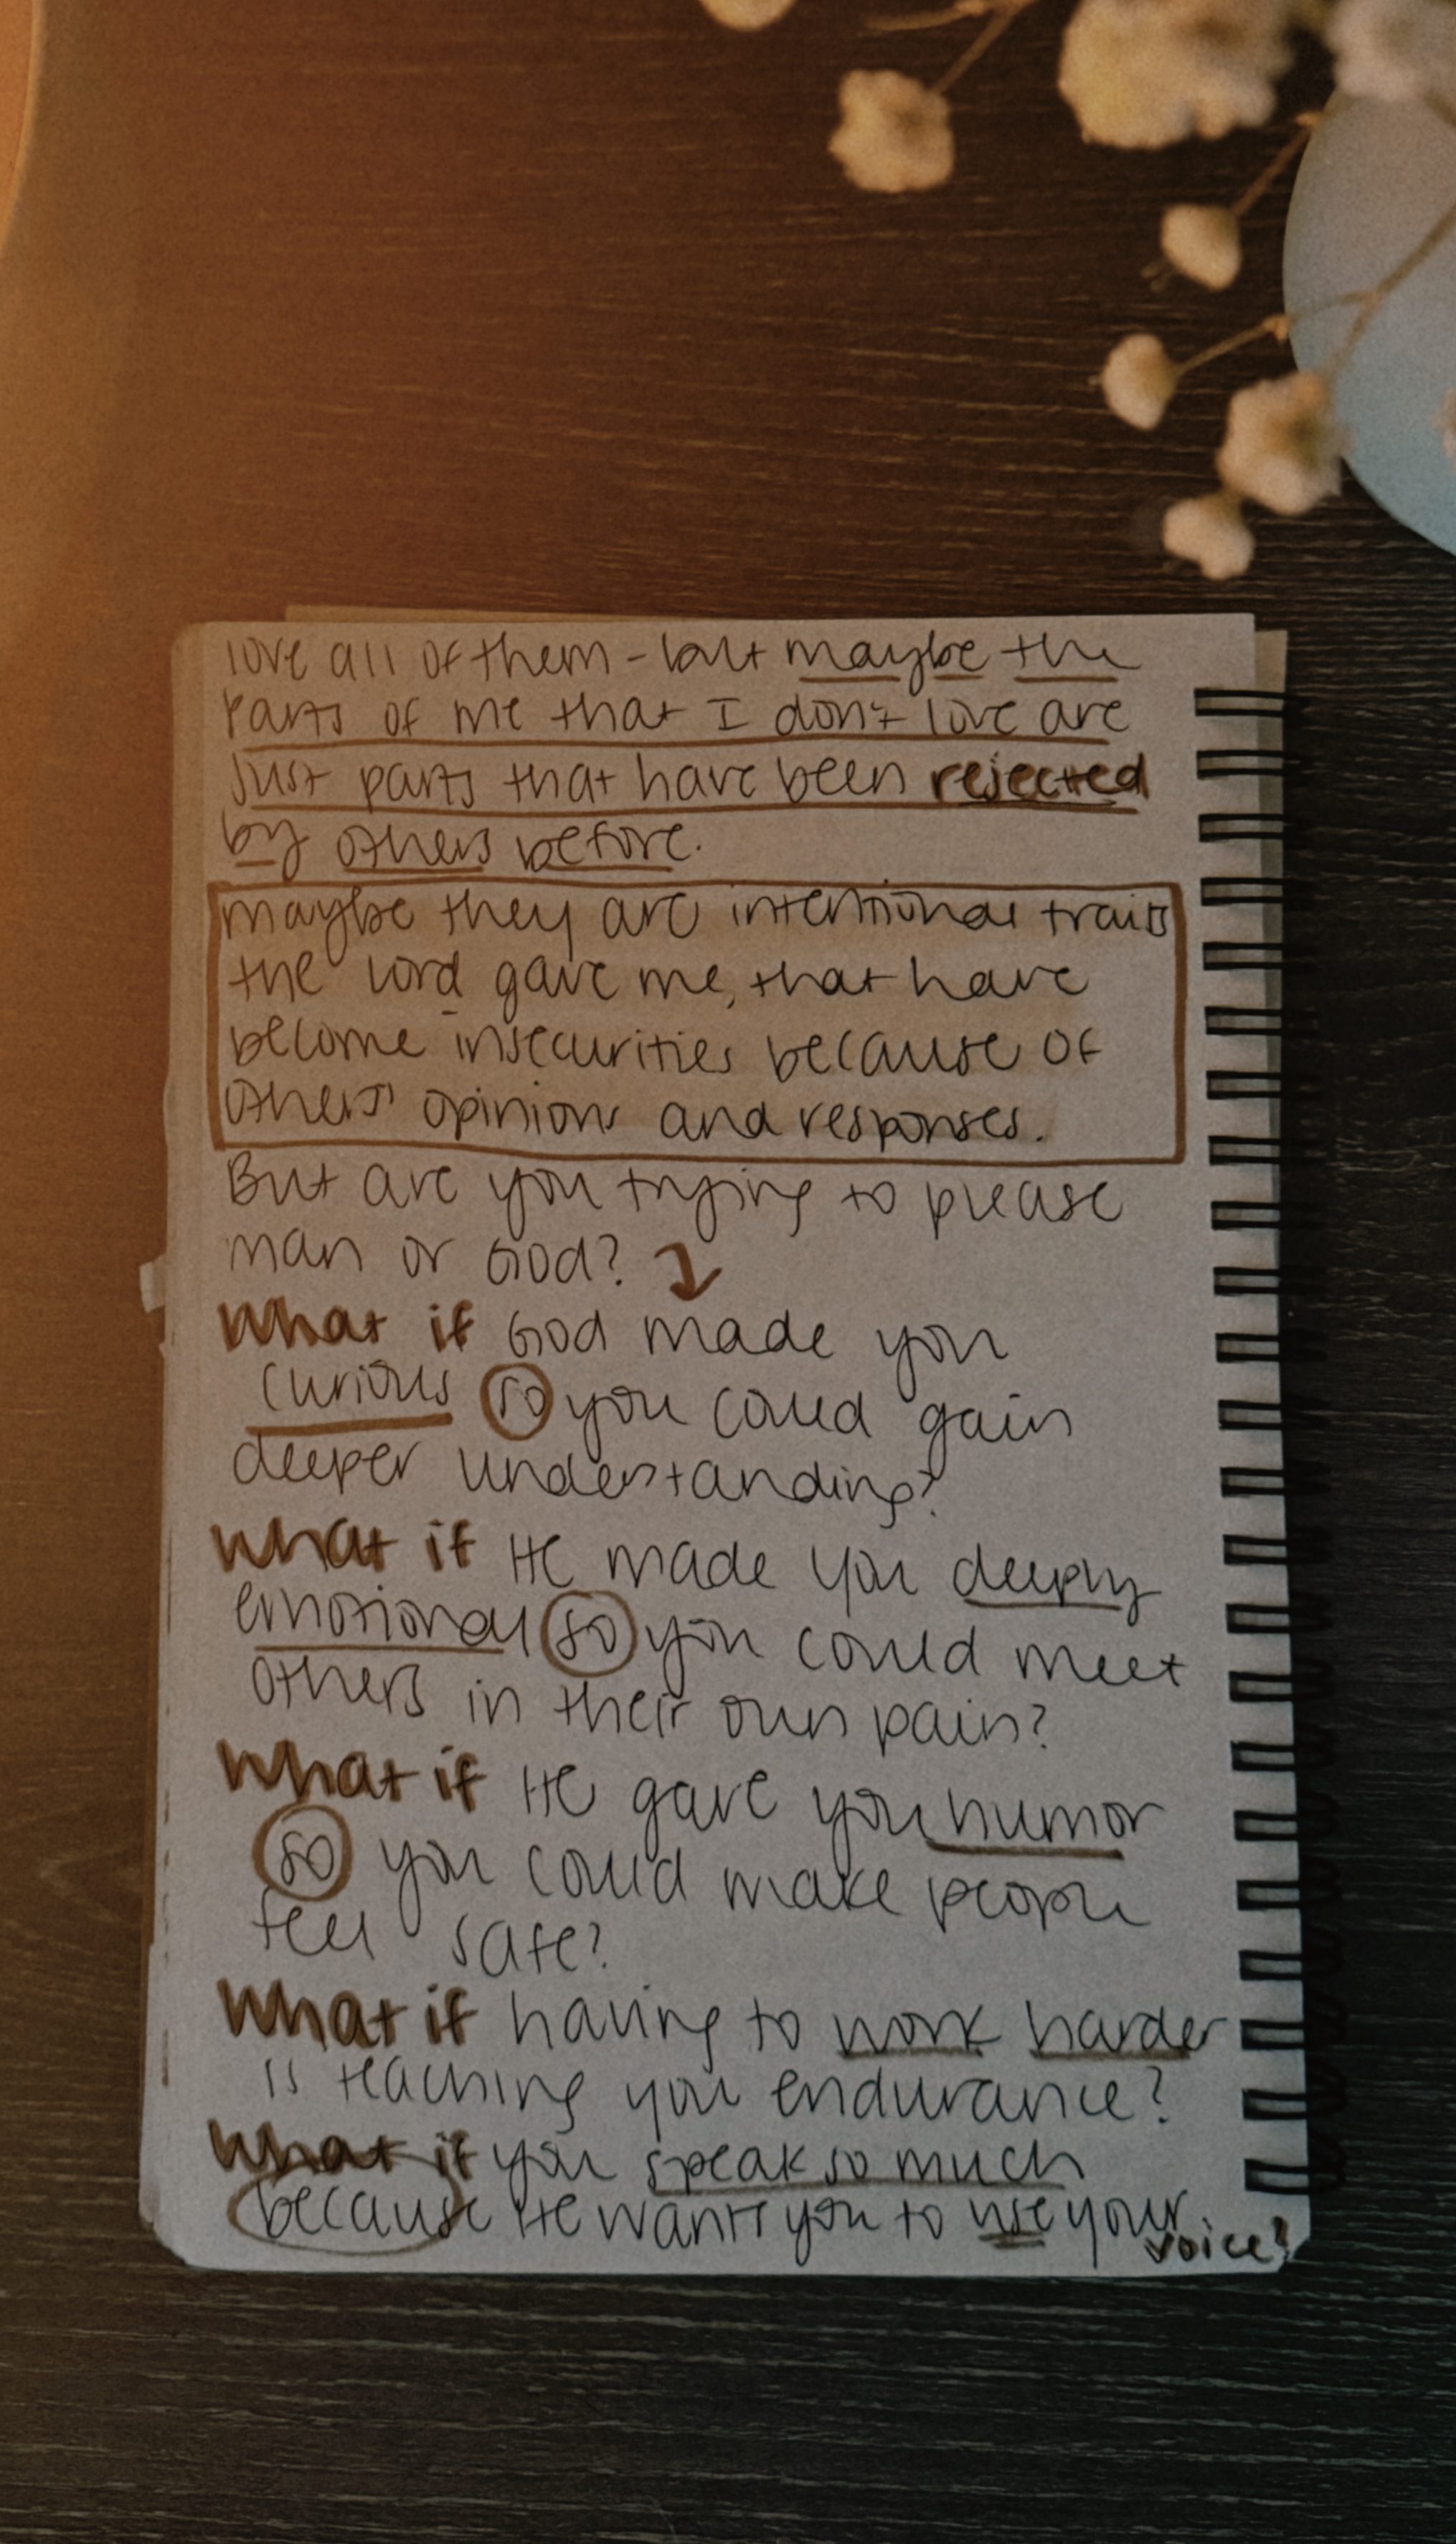 love all of them - but maybe the
parts of me that I don't love are
just parts that have been rejected
by others before.
maybe they are intentional traits
the Lord gave me, that have
become insecurities because of
others' opinions and responses.
But are you trying to please
man or God?
What if God made you
curious so you could gain
deeper understanding?
What if He made you deeply
emotional so you could meet
others in their own pain?
What if He gave you humor
so you could make people
feel safe?
What if having to work harder
is teaching you endurance?
What if you speak so much
because He wants you to use your
voice?